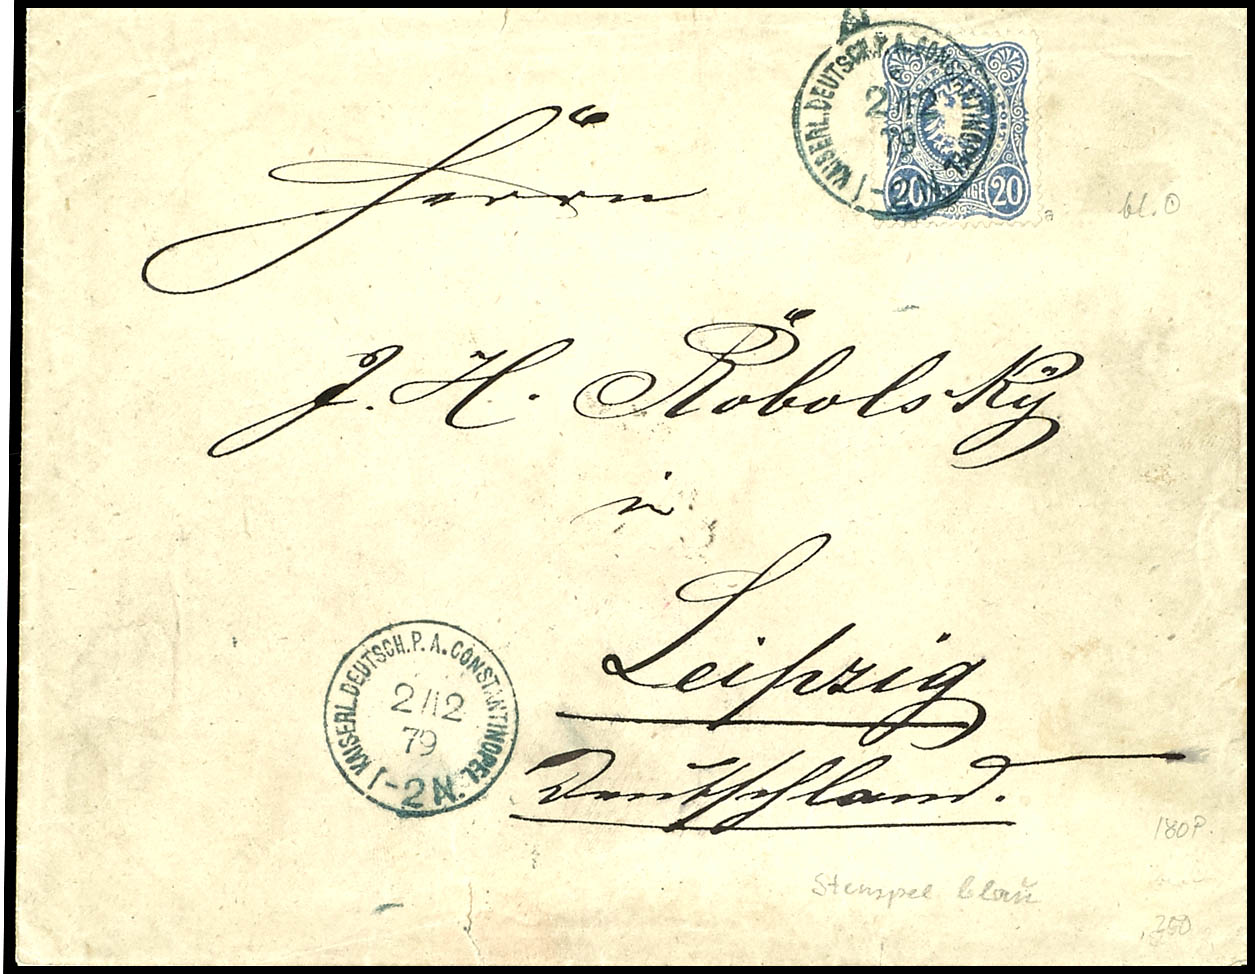 KAISERL. DEUTSCH. P. A. CONSTANTINOPEL
2/12
79
1-2 N.
20 20
a
bl. O
Herrn
J. H. Robolsky
in
Leipzig
Deutschland.
KAISERL. DEUTSCH. P. A. CONSTANTINOPEL
2/12
79
1-2 N.
180P.
Stempel blau